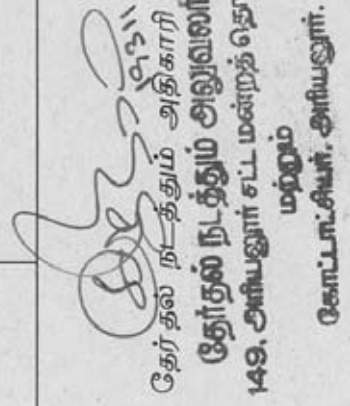 19311
தேர்தல் நடத்தும் அதிகாரி
தேர்தல் நடத்தும் அலுவலர்
149. அரியலூர் சட்ட மன்றத்
மற்றும்
கோட்டாட்சியர். அரியலூர்.